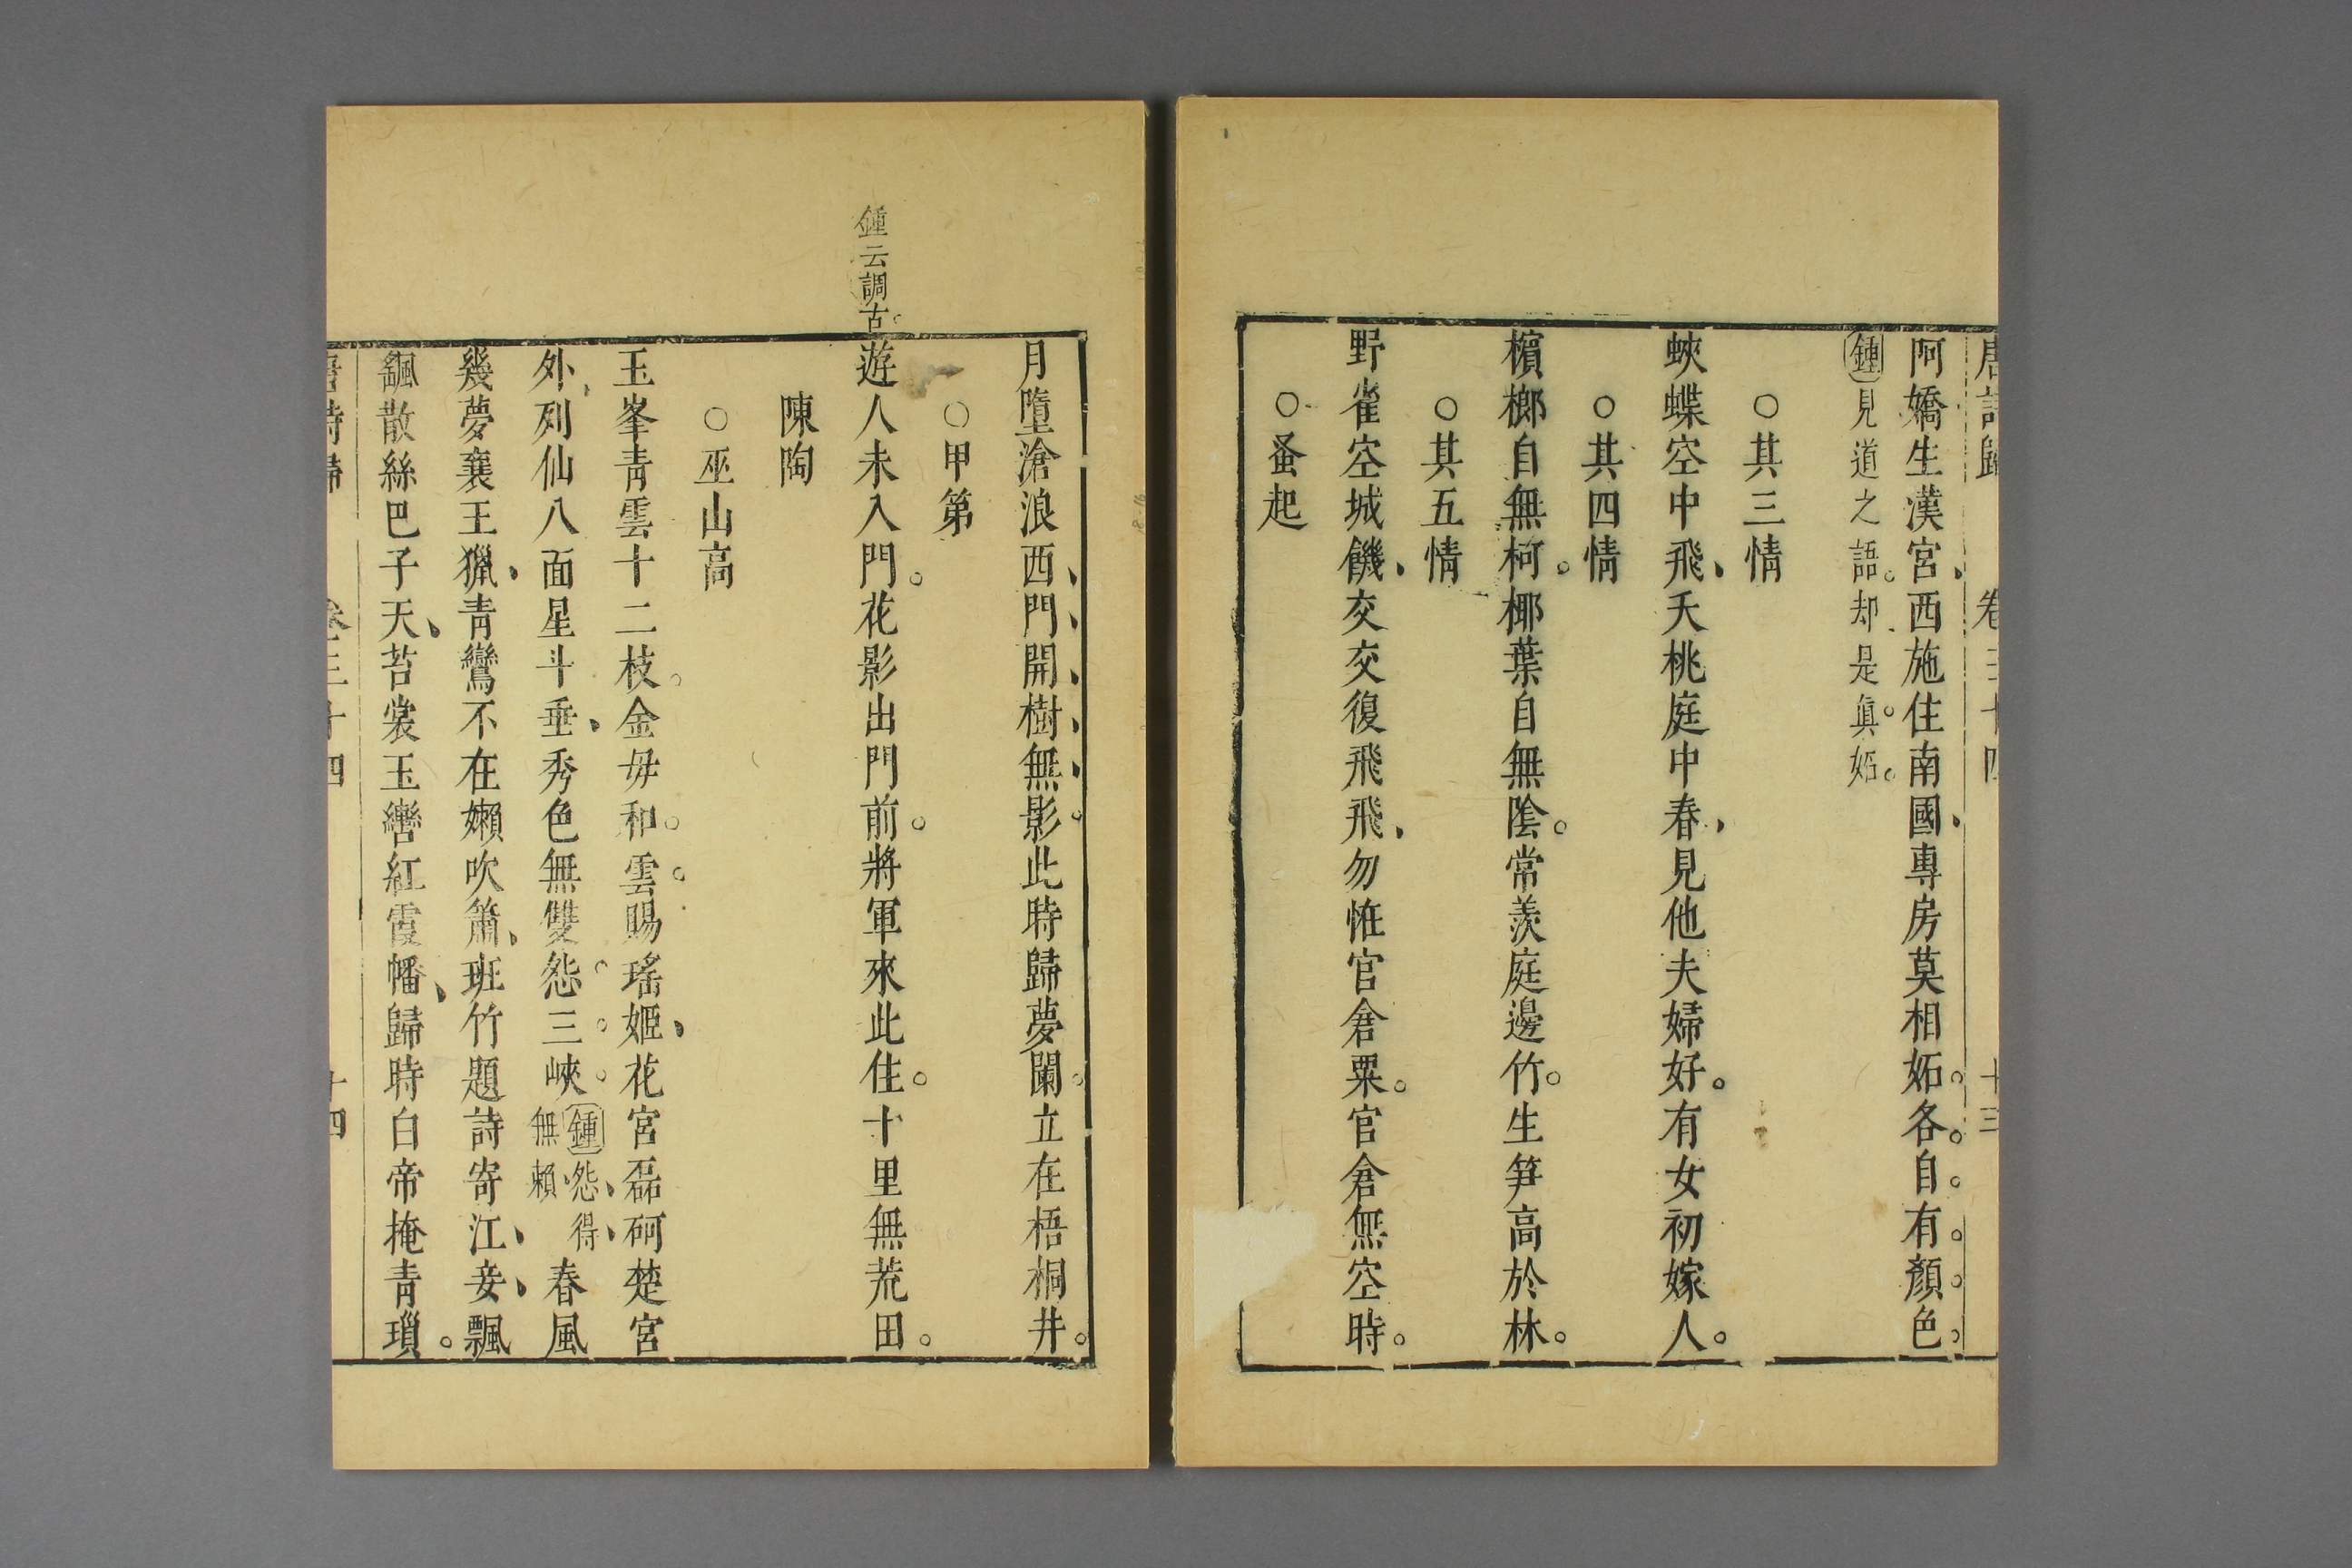 唐詩歸 卷三十四 十三
阿嬌生漢宮西施住南國專房莫相妬各自有顏色
鍾見道之語却是眞妬
○其三情
蛺蝶空中飛夭桃庭中春見他夫婦好有女初嫁人
○其四情
檳榔自無柯椰葉自無陰常羨庭邊竹生笋高於林
○其五情
野雀空城饑交交復飛飛勿恠官倉粟官倉無空時
○蚤起
月墮滄浪西門開樹無影此時歸夢闌立在梧桐井
○甲第
鍾云調古
遊人未入門花影出門前將軍來此住十里無荒田
陳陶
○巫山高
玉峯青雲十二枝金毋和雲賜瑤姬花宮磊砢楚宮
外列仙八面星斗垂秀色無雙怨三峽鍾怨得無賴春風
幾夢襄王獵青鸞不在嬾吹簫班竹題詩寄江妾飄
飄散絲巴子天苔裳玉轡紅霞幡歸時白帝掩青瑣
唐詩歸 卷三十四 十四